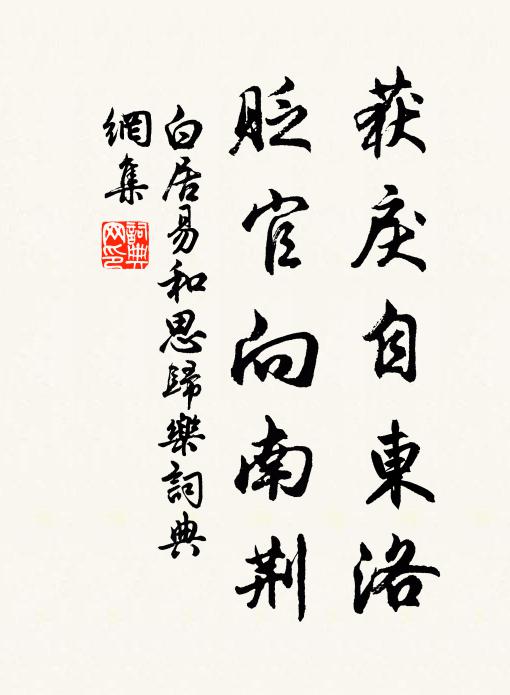 获戾自東洛
貶官向南荆
白居易和思歸樂詞典
網集
詞典
网印